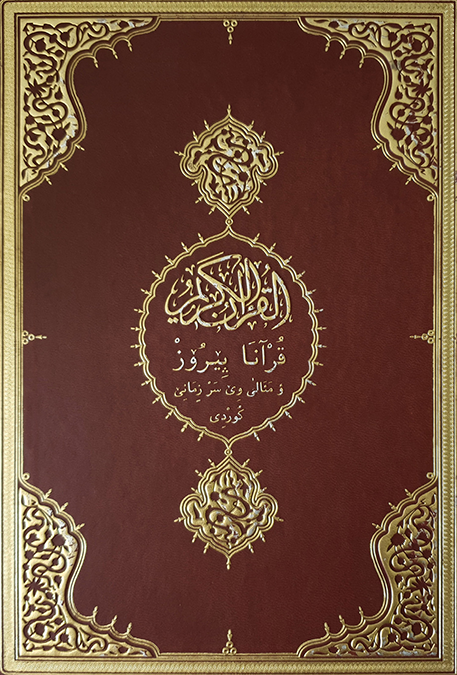 القرآن الكريم
قُرْآنَا پِيرُوزْ
وَ مَنَالیٰ وِیٰ سَرْ زِمَانِیٰ
كُورْدِي